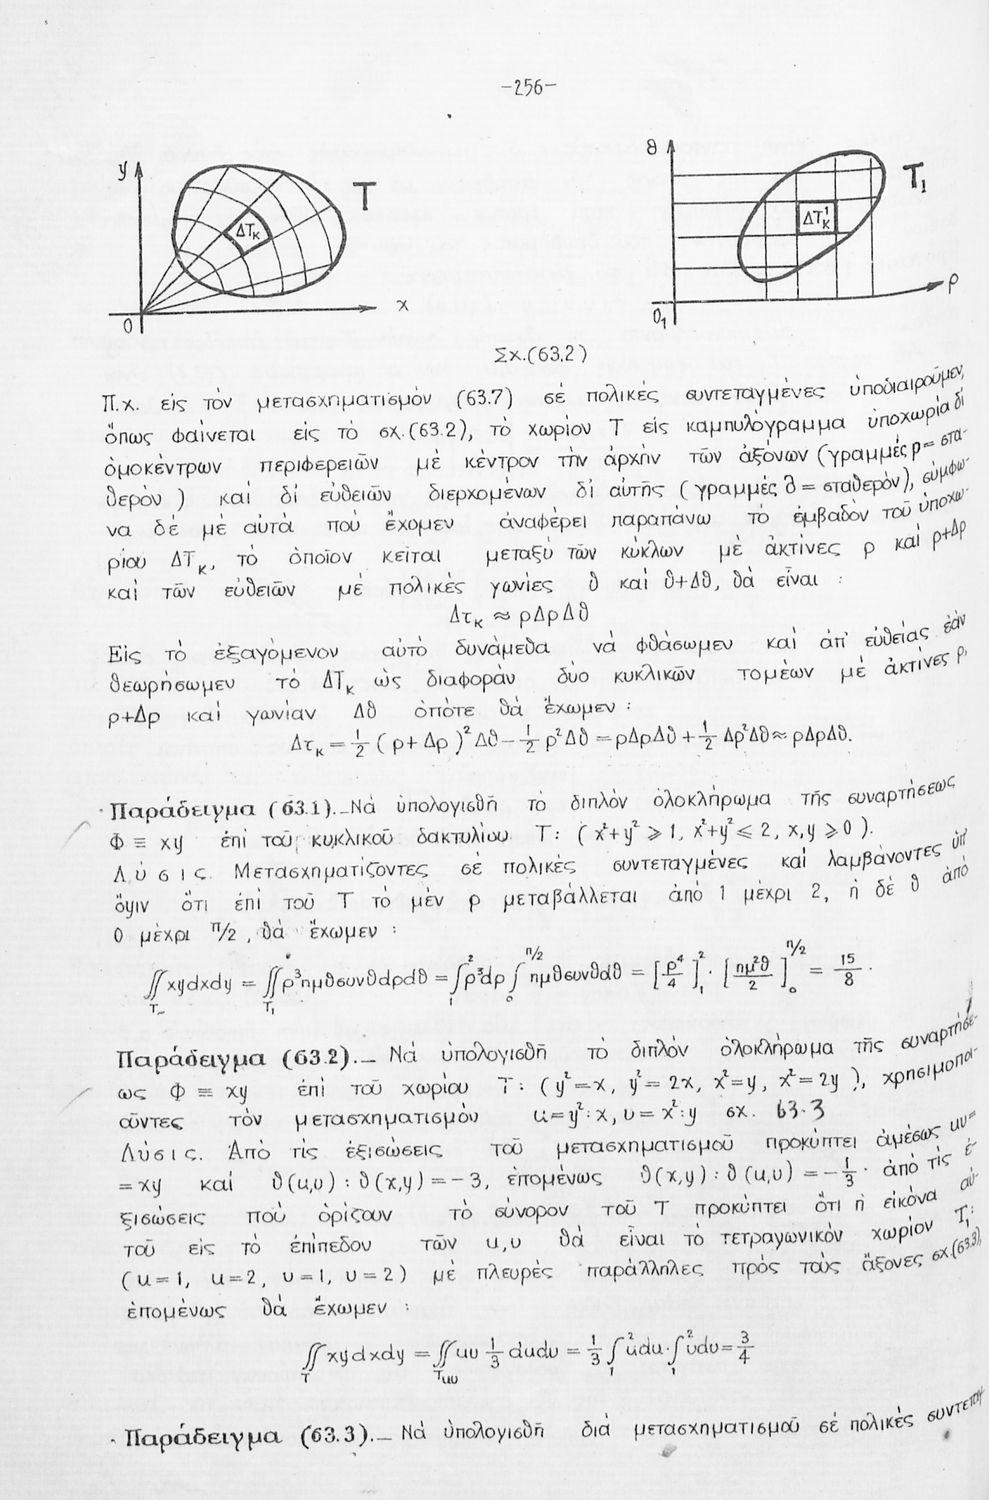 -256-
y
T
ΔTκ
0
x
θ
T₁
ΔTκ¹
0₁
ρ
Σχ.(63.2)
Π.χ. εἰς τὸν μετασχηματισμὸν (63.7) σὲ πολικές συντεταγμένες ὑποδιαιροῦμεν,
ὅπως φαίνεται εἰς τὸ σχ.(63.2), τὸ χωρίον T εἰς καμπυλόγραμμα ὑποχωρία δι
ὁμοκέντρων περιφερειῶν μὲ κέντρον τὴν ἀρχὴν τῶν ἀξόνων (γραμμές ρ= στα-
θερὸν) καὶ δι εὐθειῶν διερχομένων δι αὐτῆς (γραμμές θ = σταθερὸν), σύμφω-
να δὲ μὲ αὐτὰ ποὺ ἔχομεν ἀναφέρει παραπάνω τὸ ἐμβαδον τοῦ ὑποχω-
ρίου ΔTκ, τὸ ὁποῖον κεῖται μεταξὺ τῶν κύκλων μὲ ἀκτίνες ρ καὶ ρ+Δρ
καὶ τῶν εὐθειῶν μὲ πολικές γωνίες θ καὶ θ+Δθ, θὰ εἶναι :
Δτκ ≈ ρΔρΔθ
Εἰς τὸ ἐξαγόμενον αὐτὸ δυνάμεθα νὰ φθάσωμεν καὶ ἀπ' εὐθείας ἐὰν
θεωρήσωμεν τὸ ΔTκ ὡς διαφορὰν δύο κυκλικῶν τομέων μὲ ἀκτίνες ρ,
ρ+Δρ καὶ γωνίαν Δθ ὁπότε θὰ ἔχωμεν :
Δτκ = 1/2 (ρ+Δρ)² Δθ - 1/2 ρ²Δθ = ρΔρΔθ + 1/2 Δρ²Δθ ≈ ρΔρΔθ.
Παράδειγμα (63.1)._Νὰ ὑπολογισθῆ τὸ διπλὸν ὁλοκλήρωμα τῆς συναρτήσεως
Φ ≡ xy ἐπὶ τοῦ κυκλικοῦ δακτυλίου T: ( x²+y² ⩾ 1, x²+y² ⩽ 2, x,y ⩾ 0 ).
Λύσις. Μετασχηματίζοντες σὲ πολικές συντεταγμένες καὶ λαμβάνοντες ὑπ'
ὄψιν ὅτι ἐπὶ τοῦ T τὸ μὲν ρ μεταβάλλεται ἀπὸ 1 μέχρι 2, ἡ δὲ θ ἀπὸ
0 μέχρι π/2, θὰ ἔχωμεν :
∬_T xydxdy = ∬_T₁ ρ³ημθσυνθdρdθ = ∫₁² ρ³dρ ∫₀^π/2 ημθσυνθdθ = [ρ⁴/4]₁² · [ημ²θ/2]₀^π/2 = 15/8 .
Παράδειγμα (63.2)._ Νὰ ὑπολογισθῆ τὸ διπλὸν ὁλοκλήρωμα τῆς συναρτήσε-
ως Φ ≡ xy ἐπὶ τοῦ χωρίου T: ( y²=x, y²= 2x, x²=y, x²=2y ), χρησιμοποι-
οῦντες τὸν μετασχηματισμὸν u=y²:x, υ= x²:y σχ. 63.3
Λύσις. Ἀπὸ τὶς ἐξισώσεις τοῦ μετασχηματισμοῦ προκύπτει ἀμέσως uυ=
=xy καὶ ϑ(u,υ) : ϑ(x,y) = -3, ἑπομένως ϑ(x,y) : ϑ(u,υ) = -1/3 · ἀπὸ τὶς ἐ-
ξισώσεις ποὺ ὁρίζουν τὸ σύνορον τοῦ T προκύπτει ὅτι ἡ εἰκόνα αὐ-
τοῦ εἰς τὸ ἐπίπεδον τῶν u,υ θὰ εἶναι τὸ τετραγωνικὸν χωρίον T₁:
( u=1, u=2, υ=1, υ=2) μὲ πλευρές παράλληλες πρὸς τοὺς ἄξονες σχ.(63.3),
ἑπομένως θὰ ἔχωμεν :
∬_T xydxdy = ∬_Tuυ uυ 1/3 dudυ = 1/3 ∫₁² udu · ∫₁² υdυ = 3/4
Παράδειγμα (63.3)._ Νὰ ὑπολογισθῆ διὰ μετασχηματισμοῦ σὲ πολικές συντεταγ